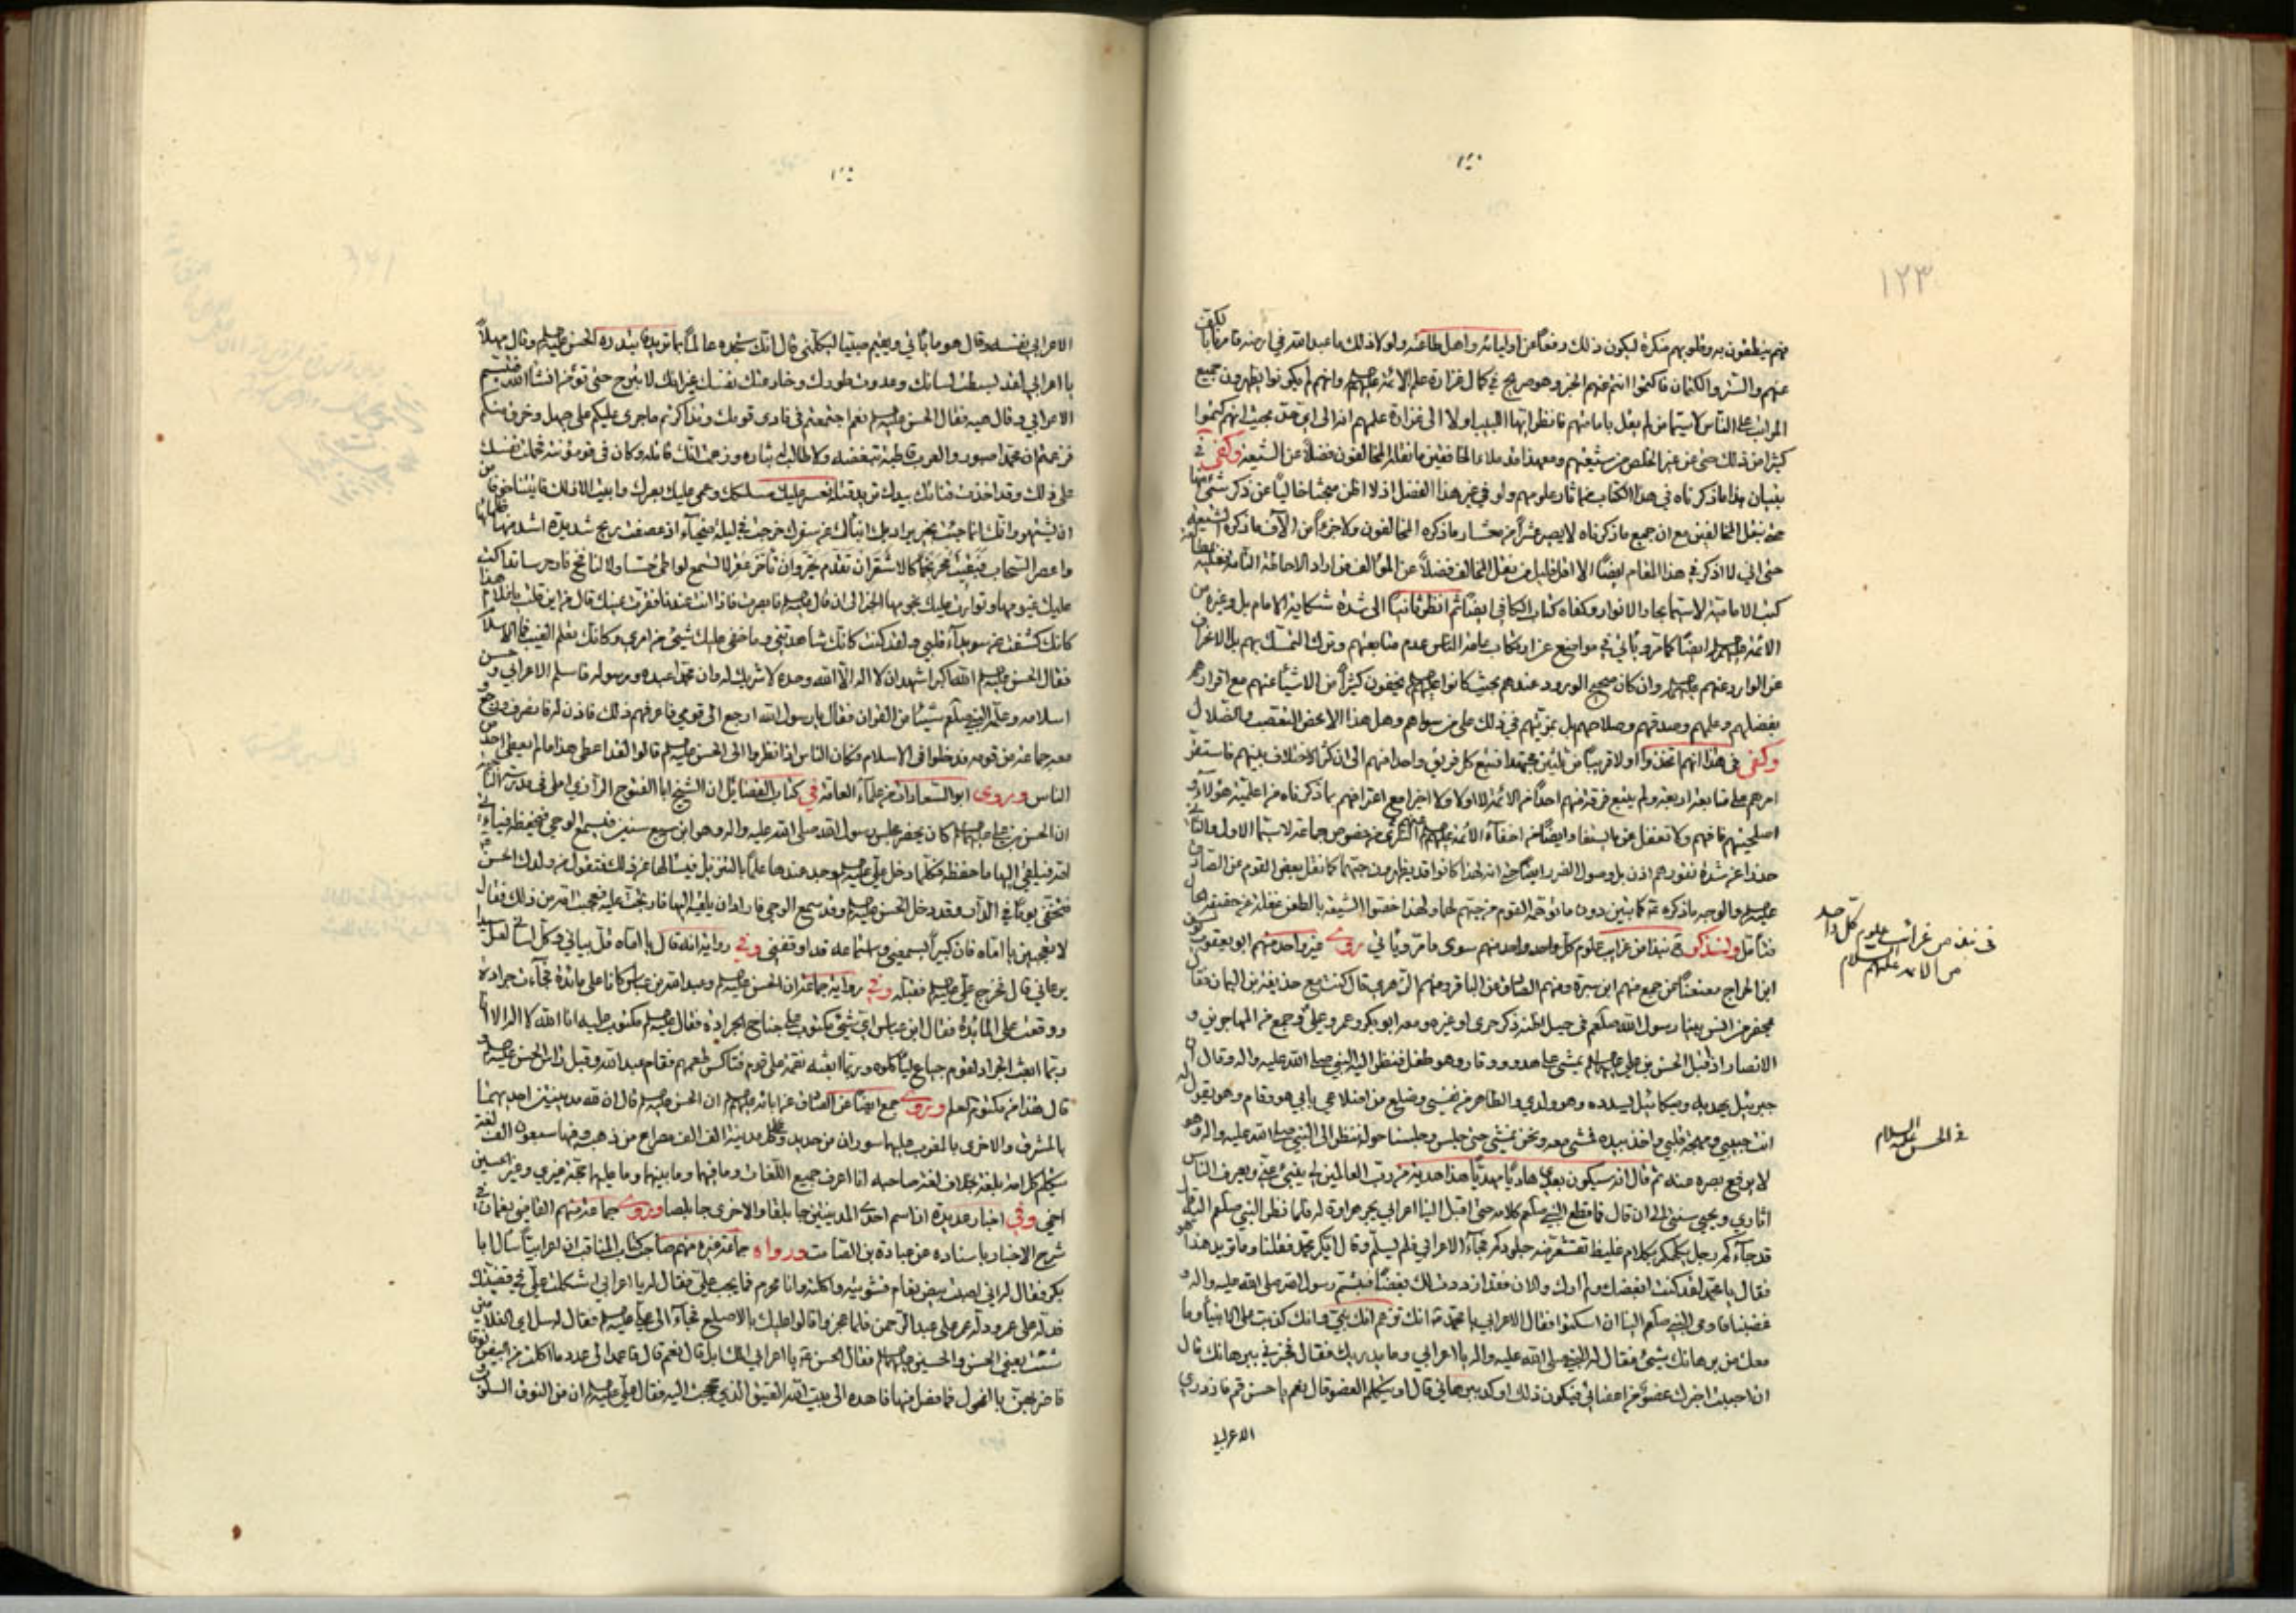 ١٢٣
منهم ينطقون به وقلوبهم منكرة ليكون ذلك دفعاً عن اوليائه واهل طاعته ولولا ذلك ما عبد الله في ارضه فامرنا بالكف
عنهم والستر والكتمان فاكتموا انتم عنهم الخبر وهو صريح في كمال غزارة علم الائمة عليهم وانهم لم يكونوا يظهرون جميع
المراتب على الناس لا سيما من لم يقل بامامتهم فانظر ايها اللبيب اولا الى غزارة علمهم انه الى اي حد بحيث انهم كتموا
كثيرا من ذلك حتى عن غير الخلص من شيعتهم ومع هذا قد ملاء الخافقين ما نقله المخالفون فضلاً عن الشيعة وكفى في
بيان هذا ما ذكرناه في هذا الكتاب من آثار علومهم ولو في غير هذا الفصل اذ لا اظن مبحثا خاليا عن ذكر شئ منها
حتى بنقل المخالفين مع ان جميع ما ذكرناه لا يصير عشراً من معشار ما ذكره المخالفون ولا جزءاً من الآف ما ذكره الشيعة
حتى اني لا اذكر في هذا المقام ايضا الا اقل قليل من نقل المخالف فضلاً عن المؤالف فمن اراد الاحاطة التامة فعليه بمطالعة
كتب الامامية لا سيما بحار الانوار وكفاه كتاب الكافي ايضا ثم انظر ثانيا الى شدة شكاية الامام بل وغيره من
الائمة عليهم ايضا كما مر ويأتي في مواضع عن ارتكاب عامة الناس عدم متابعتهم وترك التمسك بهم بل الاعراض
عن الوارد عنهم عليهم وان كان صحيح الورود عندهم بحيث كانوا عليهم يخفون كثيراً من الاشياء عنهم مع اقرارهم
بفضلهم وعلمهم وصدقهم وصلاحهم بل بمزيتهم في ذلك على من سواهم وهل هذا الا محض التعصب والضلال
وكفى في هذا انهم اتخذوا اولا قريبا من ثلثين مجتهدا فتبع كل فريق واحدا منهم الى ان كثر الاختلاف بينهم فاستقر
امرهم على متابعة اربعة ولم يتبع فرقة منهم احداً من الائمة لا اولا ولا اخرا مع اعترافهم بما ذكرناه من اعلمية هؤلاء و
اصلحيتهم فافهم ولا تغفل عن ايضا من اخفاء الائمة عليهم التبرئ من خصوص جماعة لا سيما الاول والثاني
حذرا عن شدة نفورهم اذن بل وصول الضرر ايضا حتى انه لهذا كانوا قد يظهرون حبهما كما نقل بعض القوم عن الصادق
عليه والوجه ما ذكره كما تبين دون ما توهمه القوم من حبهم لهما ولهذا خصوا الشيعة بالطعن غفلة عن حقيقة الحال
فتأمل ولنذكر نبذا من غرائب علوم كل واحد واحد منهم سوى ما مر ويأتي روى غير واحد منهم ابو يعقوب يوسف
ابن الجراح معنعنا عن جمع منهم ابن سبرة ومنهم الصادق عن الباقر ومنهم الزهري قال كنت مع حذيفة بن اليمان فقال
بينا رسول الله صلعم في جبل اظنه ذكر حرى او غيره ومعه ابو بكر وعمر وعلي وجمع من المهاجرين و
الانصار اذ اقبل الحسن بن علي عليهم يمشي على هدوء ووقار وهو طفل فنظر اليه النبي صلى الله عليه واله وقال ان
جبرئيل يهديه وميكائيل يسدده وهو ولدي والطاهر من نفسي وضلع من اضلاعي بابي هو وقام وهو يقول له
انت حبيبي ومهجة قلبي واخذ بيده فمشى معه ونحن نمشي حتى جلس وجلسنا حوله ننظر الى النبي صلى الله عليه واله وهو
لا يرفع بصره عنه ثم قال انه سيكون بعدي هاديا مهديا هذا هدية من رب العالمين لي ينبئ عني ويعرف الناس
اثاري ويحيي سنتي الى ان قال فما قطع النبي صلعم كلامه حتى اقبل الينا اعرابي يجر هراوة له فلما نظر النبي صلعم اليه قال
قد جاءكم رجل يكلمكم بكلام غليظ تقشعر منه جلودكم فجاء الاعرابي فلم يسلم وقال ايكم محمد فقلنا وما تريد هذا هو
فقال يا محمد لقد كنت ابغضك ولم ارك والان فقد ازددت لك بغضا فتبسم رسول الله صلى الله عليه واله و
غضبنا فاومى النبي صلعم الينا ان اسكتوا فقال الاعرابي يا محمد انك تزعم انك نبي وانك كذبت على الانبياء وما
معك من برهانك شئ فقال له النبي صلى الله عليه واله يا اعرابي وما يدريك فقال فخبرني ببرهانك قال
ان احببت اخبرك عضو من اعضائي فيكون ذلك اوكد ببرهاني قال او يتكلم العضو قال نعم يا حسن قم فازدرى
الاعرابي
في نبذ من غرائب علوم كل واحد
من الائمة عليهم السلام
في الحسن عليه السلام
الاعرابي بنفسه وقال هو ما يأتي ويقيم صبيا ليكلمني قال انك ستجده عالماً بما تريد فابتدره الحسن عليه وقال مهلاً
يا اعرابي لقد بسطت لسانك وعدوت طورك وخادعتك نفسك غير انك لا تبرح حتى تؤمن انشاء الله فتبسم
الاعرابي وقال هيه فقال الحسن عليه نعم اجتمعتم في نادي قومك وتذاكرتم ما جرى عليكم على جهل وخرق منكم
فزعمتم ان محمدا صبور والعرب قاطبة تبغضه ولا طالب له بثاره وزعمت انك قاتله وكان في قومك مؤنته فحملت نفسك
على ذلك وقد اخذت قناتك بيدك تريد قتله فعسر عليك مسلكك وعمي عليك بصرك وابيت الا ذلك فاتيتنا خوفا من
ان يشتهر وانك انما جئت بخير يراد بك انبئك عن سفرك خرجت في ليلة ضحياء اذ عصفت ريح شديدة اشتد منها ظلماؤها
واعصر السحاب فبقيت محرنجما كالاشقر ان تقدم نحر وان تأخر عقر لا تسمع لواطئ حسا ولا لنافخ نار جرسا تداكت
عليك غيومها وتوارت عليك نجومها الخبر الى ان قال عليه فابصرت فاذا انت عندنا فقرت عينك قال من اين قلت يا غلام هذا
كانك كشفت عن سويداء قلبي ولقد كنت كانك شاهدتني وما خفي عليك شئ من امري وكانك تعلم الغيب فما الاسلام
فقال الحسن عليه الله اكبر اشهد ان لا اله الا الله وحده لا شريك له وان محمدا عبده ورسوله فاسلم الاعرابي وحسن
اسلامه وعلمه النبي صلعم شيئا من القرآن فقال يا رسول الله ارجع الى قومي فاعرفهم ذلك فاذن له فانصرف ورجع و
معه جماعة من قومه فدخلوا في الاسلام وكان الناس اذا نظروا الى الحسن عليه قالوا لقد اعطى هذا ما لم يعط احد من
الناس وروى ابو السعادات من علماء العامة في كتاب الفضائل ان الشيخ ابا الفتوح الرازي املى في مدرسة الناجية
ان الحسن بن علي عليهم كان يحضر مجلس رسول الله صلى الله عليه واله وهو ابن سبع سنين فيسمع الوحي فيحفظه فيأتي
امه فيلقي اليها ما حفظه فكلما دخل علي عليه وجد عندها علما بالتنزيل فيسالها عن ذلك فتقول من ولدك الحسن
فتخفى يوما في الدار وقد دخل الحسن عليه وقد سمع الوحي فاراد ان يلقيه اليها فارتج عليه فعجبت امه من ذلك فقال
لا تعجبين يا اماه فان كبيراً يسمعني واستماعه قد اوقفني وفي رواية انه قال يا اماه قل بياني وكل لساني لعل سيدا
يرعاني قال فخرج علي عليه فقبله وفي رواية جماعة ان الحسن عليه وعبد الله بن عباس كانا على مائدة فجاءت جرادة
ووقعت على المائدة فقال ابن عباس اي شئ مكتوب على جناح الجرادة فقال عليه مكتوب عليه انا الله لا اله الا انا
ربما ابعث الجراد لقوم جياع ليأكلوه وربما ابعثه نقمة على قوم فتأكل طعمهم فقام عبد الله وقبل راس الحسن عليه و
قال هذا من مكنون العلم وروى جمع ايضا عن الصادق عن ابائه عليهم ان الحسن عليه قال ان لله مدينتين احديهما
بالمشرق والاخرى بالمغرب عليهما سوران من حديد وعلى كل مدينة الف الف مصراع من ذهب وفيها سبعون الف لغة
يتكلم كل امة بلغة بخلاف لغة صاحبه انا اعرف جميع اللغات وما فيهما وما بينهما وما عليهما حجة غيري وغير الحسين
اخي وفي اخبار عديدة ان اسم احدى المدينتين جابلقا والاخرى جابلصا وروى جماعة منهم القاضي نعمان في
شرح الاخبار باسناده عن عبادة بن الصامت ورواه جماعة غيره منهم صاحب كتاب المناقب ان اعرابيا سال ابا
بكر فقال له اني اصبت بيض نعام فشويته واكلته وانا محرم فما يجب علي فقال له يا اعرابي اشكلت علي في قضيتك
فدله على عمر ودله عمر على عبد الرحمن فلما عجزوا قالوا عليك بالاصلع فجاء الى علي عليه فقال له سل اي الغلامين
شئت يعني الحسن والحسين عليهم فقال الحسن يا اعرابي الك ابل قال نعم قال فاعمد الى عدد ما اكلت من البيض نوقا
فاضربهن بالفحول فما فضل منها فاهده الى بيت الله العتيق الذي حججت اليه فقال علي عليه ان من النوق السلوب